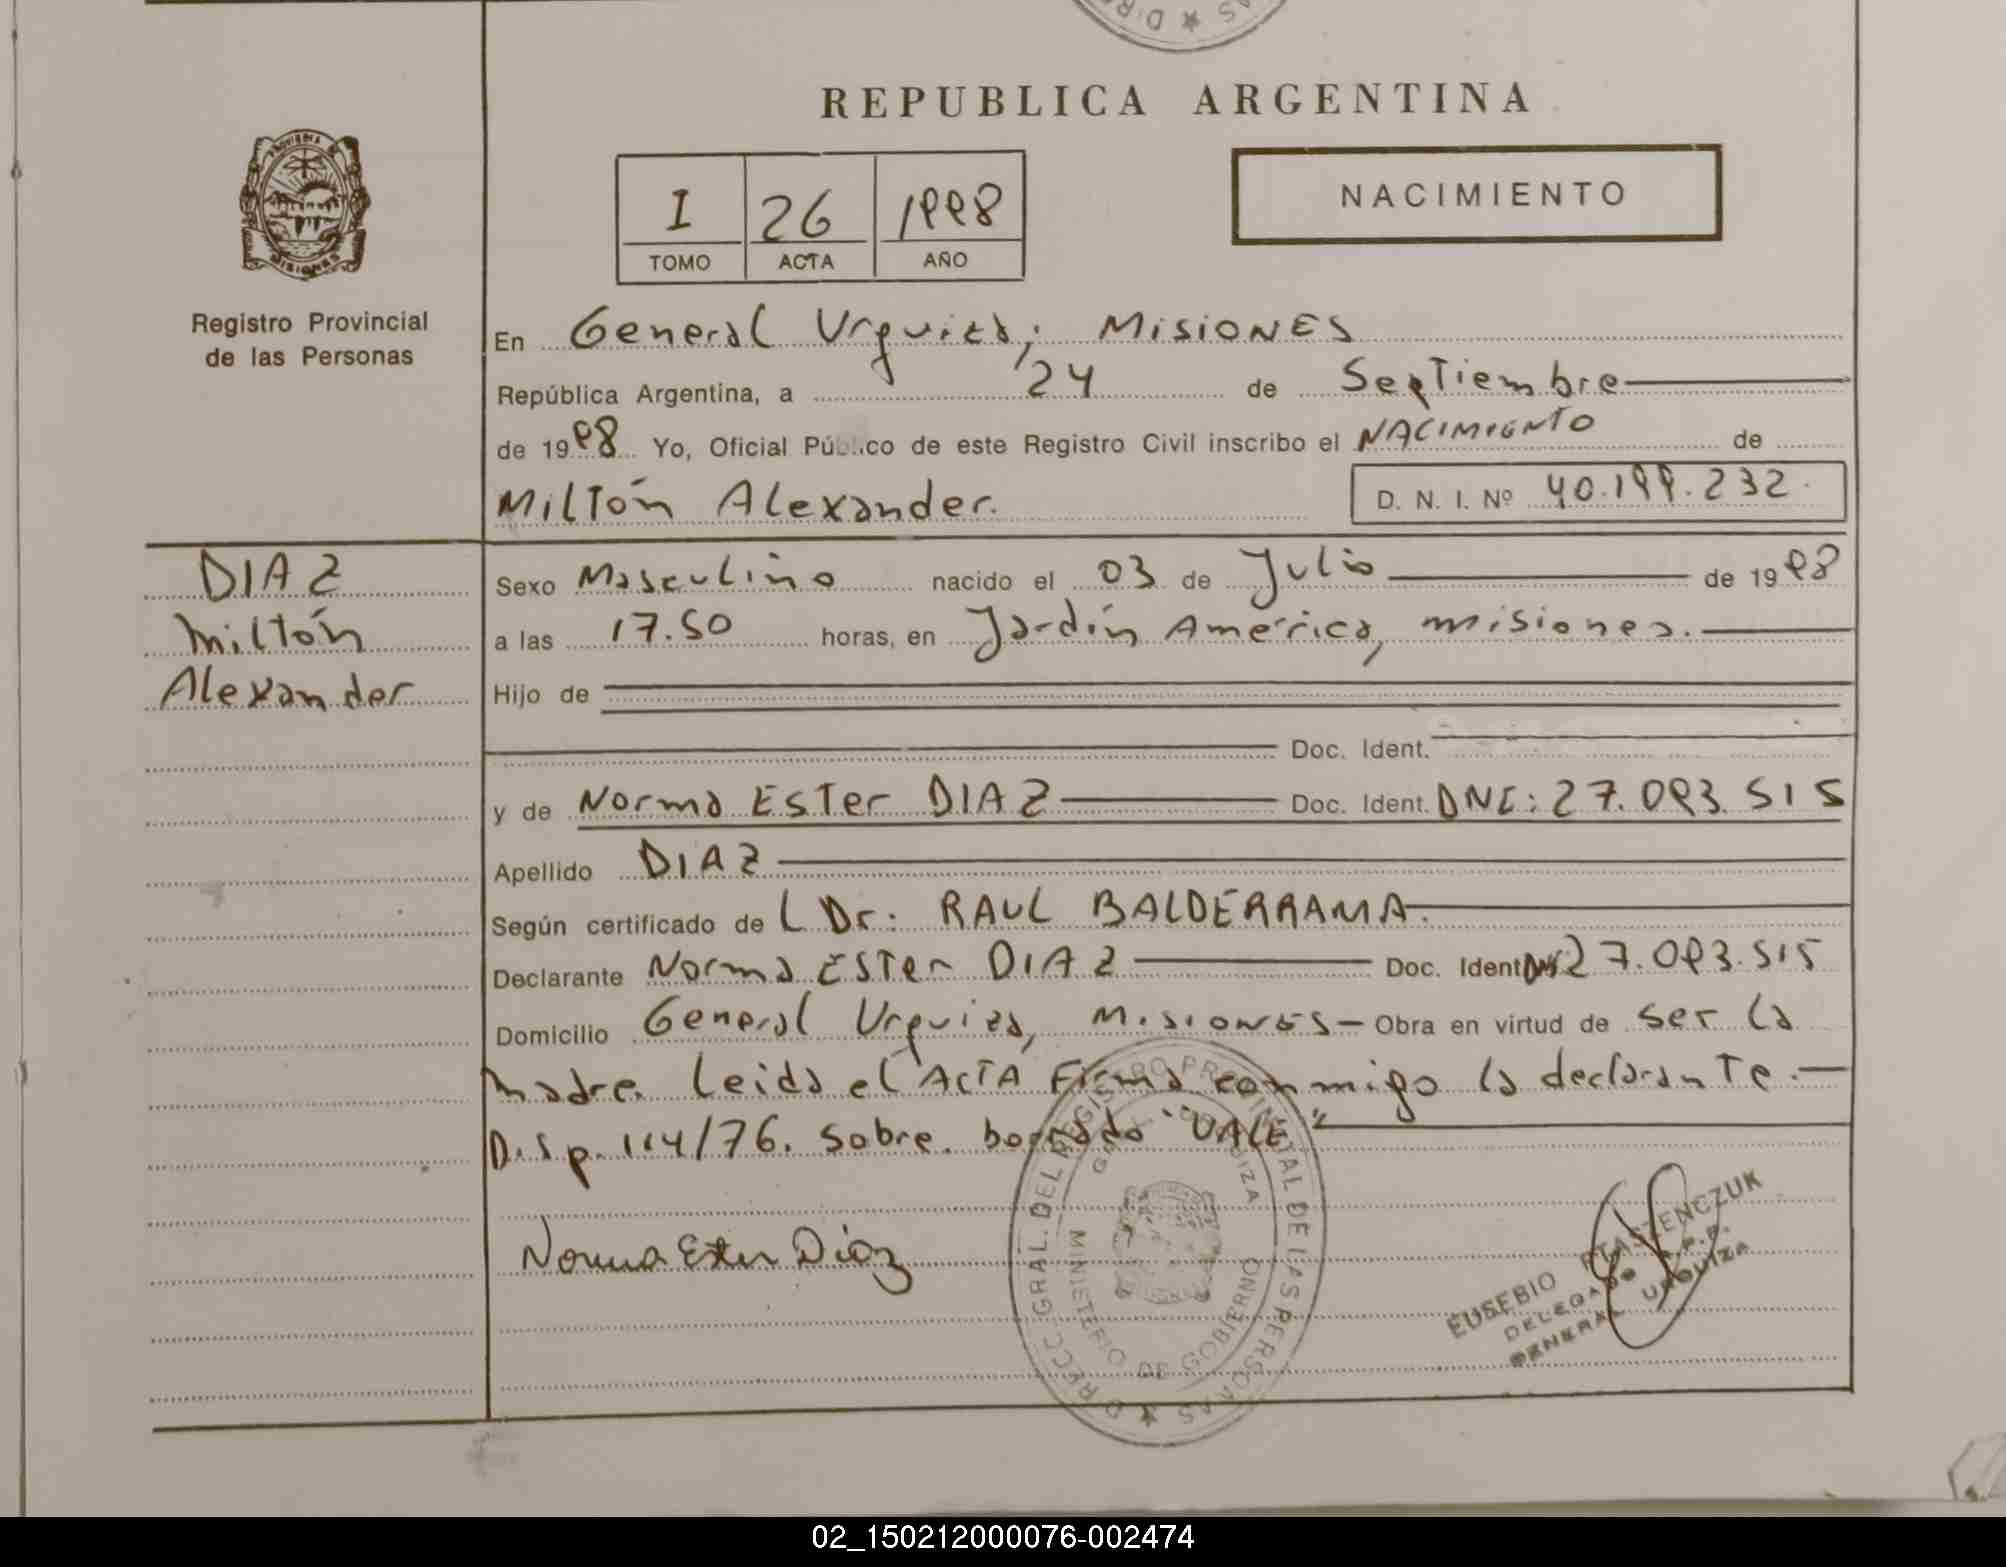 REPUBLICA ARGENTINA
I 26 1998
TOMO ACTA AÑO
NACIMIENTO
Registro Provincial
de las Personas
En General Urquiza, Misiones
República Argentina, a 24 de Septiembre
de 1998 Yo, Oficial Público de este Registro Civil inscribo el NACIMIENTO de
Miltón Alexander.
D. N. I. Nº 40.199.232
DIAZ
Miltón
Alexander
Sexo Masculino nacido el 03 de Julio de 1998
a las 17.50 horas, en Jardín América, Misiones.
Hijo de
Doc. Ident.
y de Norma Ester DIAZ Doc. Ident. DNI: 27.093.515
Apellido DIAZ
Según certificado de L Dr: RAUL BALDERRAMA.
Declarante Norma Ester DIAZ Doc. Ident DNI 27.093.515
Domicilio General Urquiza, Misiones - Obra en virtud de ser la
madre. Leida el ACTA Firma conmigo la declarante.-
Disp. 114/76. Sobre. borrado "VALE"
Norma Ester Díaz
DIRECC. GRAL. DEL REGISTRO PROVINCIAL DE LAS PERSONAS
MINISTERIO DE GOBIERNO
EUSEBIO PTASZENCZUK
DELEGADO R.P.P.
GENERAL URQUIZA
02_150212000076-002474